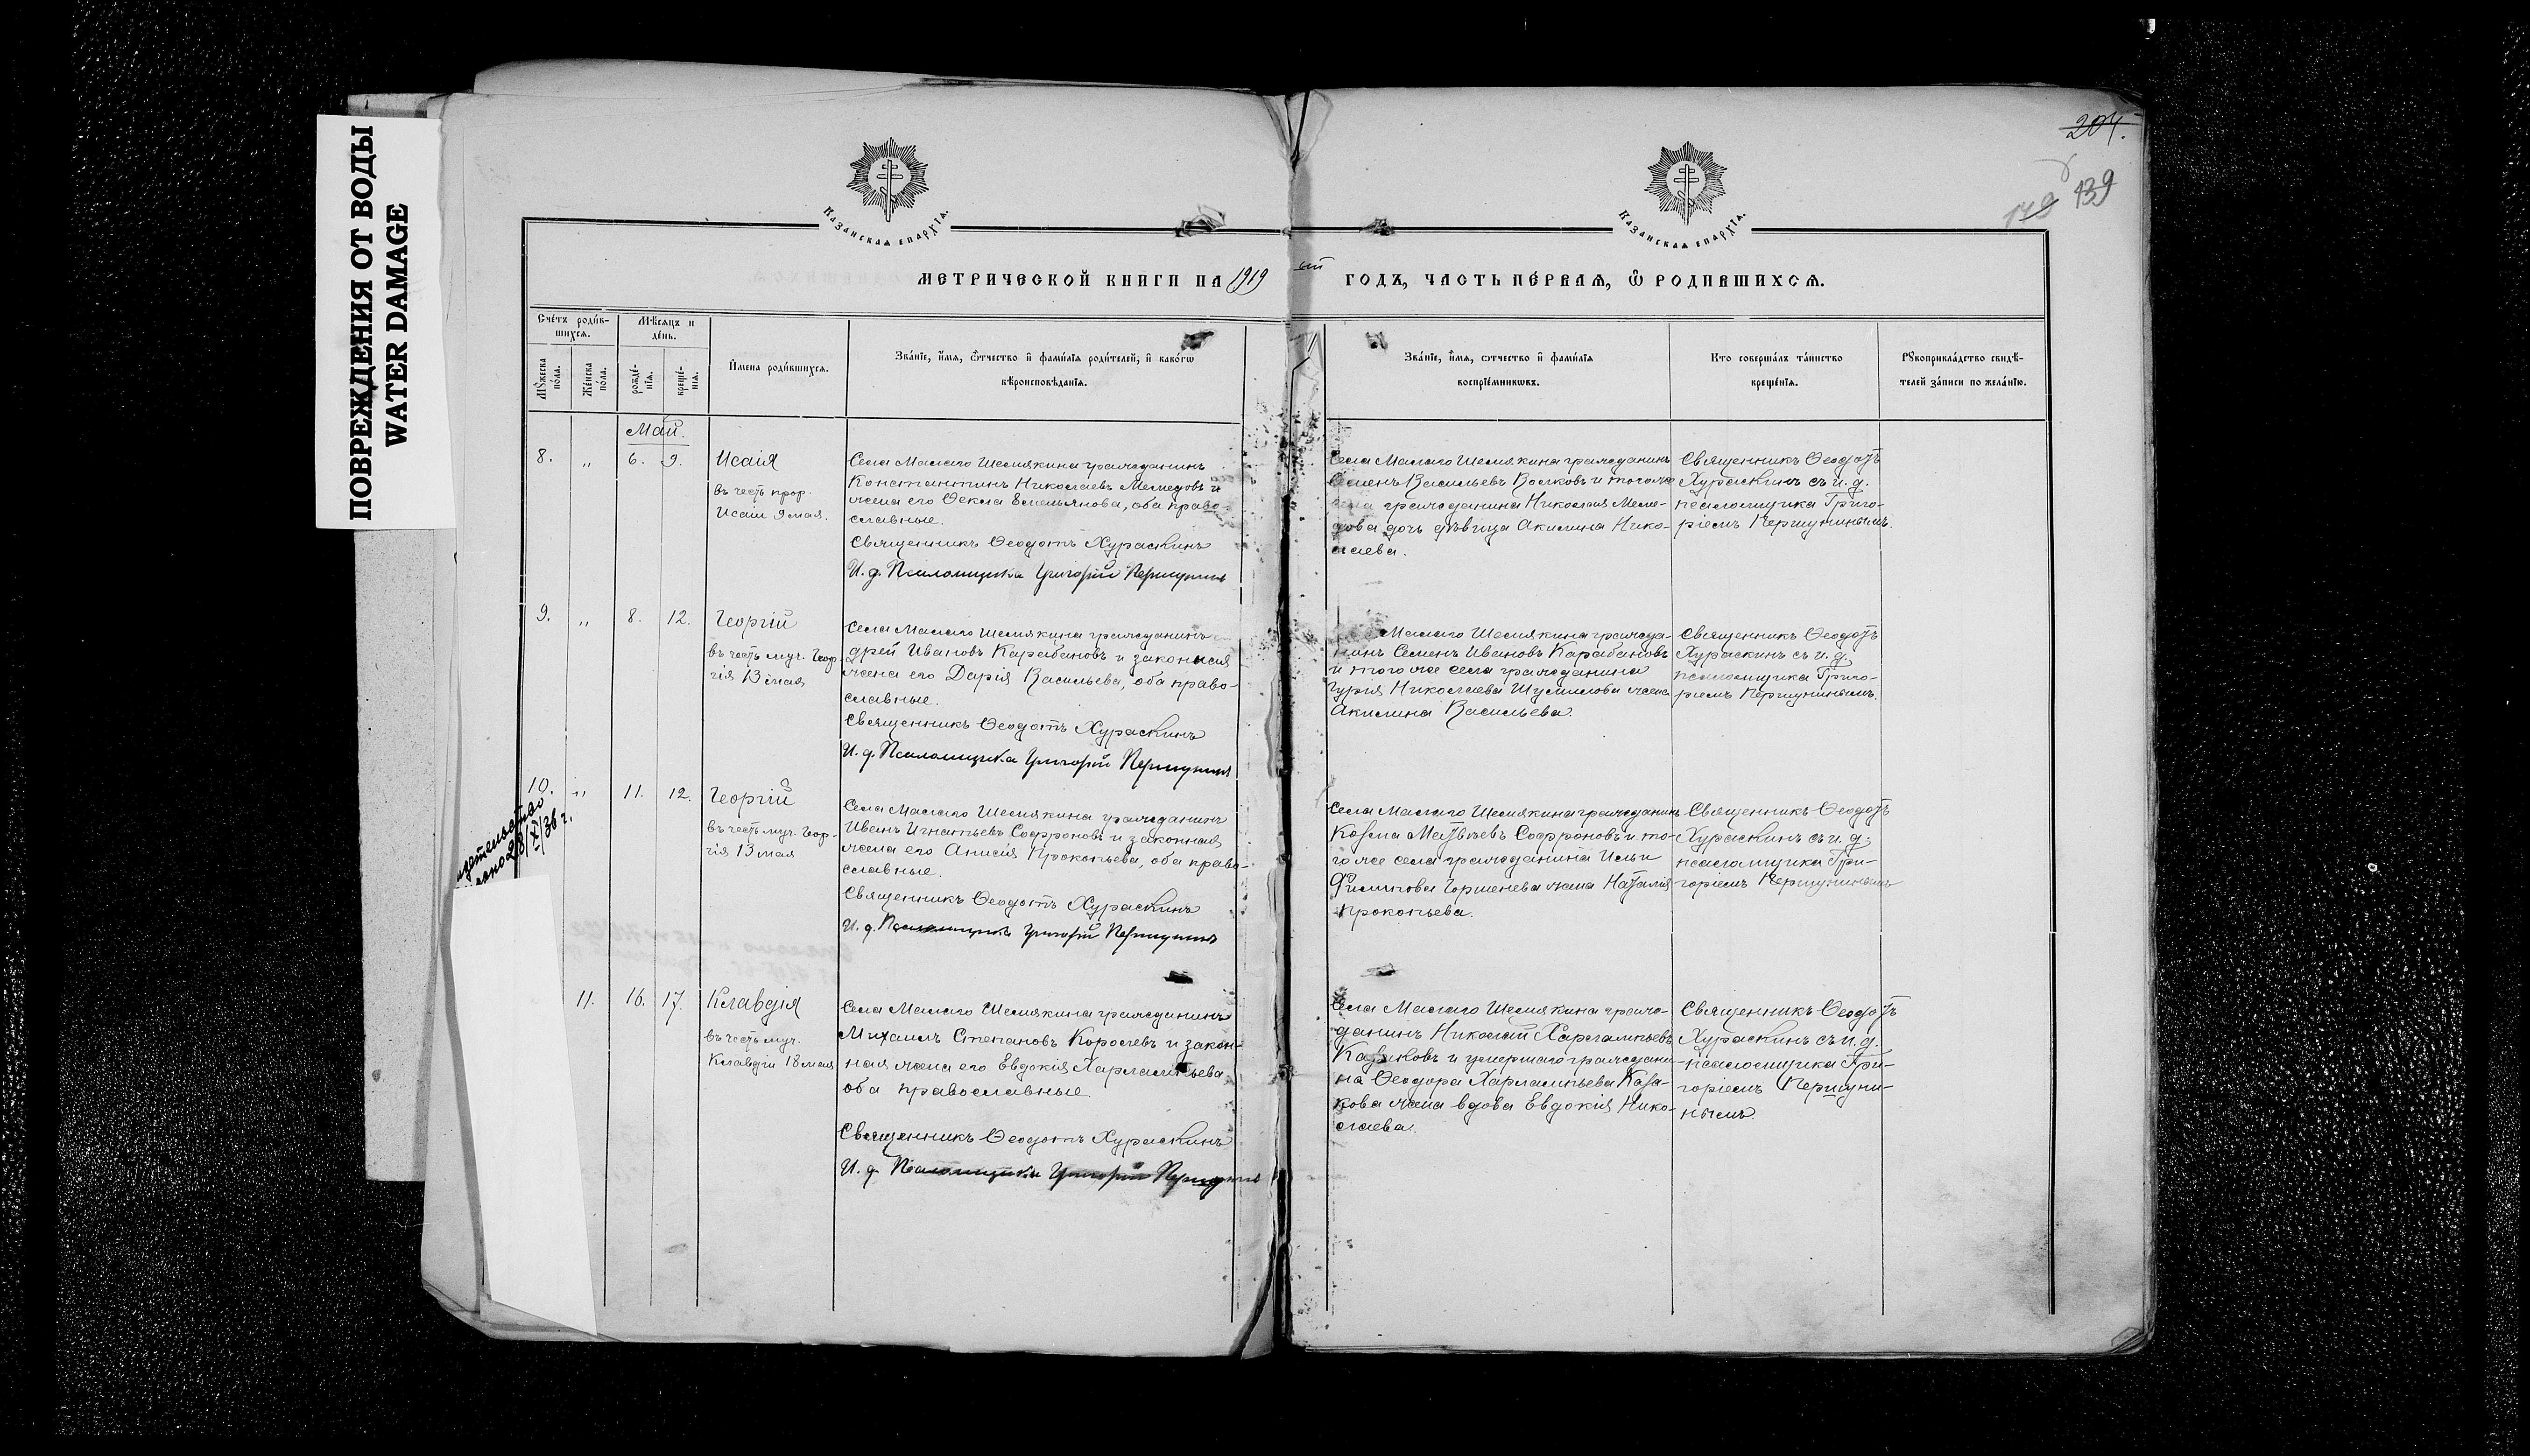 ПОВРЕЖДЕНИЯ ОТ ВОДЫ
WATER DAMAGE
204.
139
Казанская епархїѧ.
Казанская епархїѧ.
МЕТРИЧЕСКОЙ КНИГИ НА 1919 ый ГОДЪ, ЧАСТЬ ПЕ́РВАѦ, Ѽ РОДИВШИХСѦ.
Сче́тъ роди́в-
шихсѧ.
Мѣ́сѧцъ и
де́нь.
Мꙋ́жеска
по́ла.
Же́нска
по́ла.
рожде́-
нїѧ.
креще́-
нїѧ.
И҆мена роди́вшихсѧ.
Зва́нїе, и҆́мѧ, ѻ҆́тчество и҆ фами́лїѧ роди́телей, и҆ како́гѡ
вѣ̀роисповѣ́данїѧ.
Зва́нїе, и҆́мѧ, ѻтчество и҆ фами́лїѧ
воспрїе́мникѡвъ.
Кто соверша́лъ та́инство
креще́нїѧ.
Рꙋкоприкла́дство свидѣ́-
телей за́писи по жела́нїю.
Май.
8. " 6. 9. Исаія
въ честь прор.
Исаіи 9 мая.
Села Малаго Шемякина гражданинъ
Константинъ Николаевъ и
жена его Ѳекла Емельянова, оба право-
славные.
Священникъ Ѳеодотъ Хураскинъ
И. д. Псаломщика Григорій Першунинъ
Села Малаго Шемякина гражданинъ
Семенъ Васильевъ Волковъ и тогоже
села гражданина Николая
дочь дѣвица Акилина Нико-
лаева.
Священникъ Ѳеодотъ
Хураскинъ съ и. д.
псаломщика Григо-
ріемъ Першунинымъ.
9. " 8. 12. Георгій
въ честь муч. Геор-
гія 13 мая
Села Малаго Шемякина гражданинъ
дрей Ивановъ Карабановъ и законная
жена его Дарія Васильева, оба право-
славные.
Священникъ Ѳеодотъ Хураскинъ
И. д. Псаломщика Григорій Першунинъ
Малаго Шемякина гражда-
нинъ Семенъ Ивановъ Карабановъ
и того же села гражданина
Гурія Николаева Шумилова жена
Акилина Васильева.
Священникъ Ѳеодотъ
Хураскинъ съ и. д.
псаломщика Григо-
ріемъ Першунинымъ.
10. " 11. 12. Георгій
въ честь муч. Геор-
гія 13 мая
28/X/36 г.
Села Малаго Шемякина гражданинъ
Иванъ Игнатьевъ Софроновъ и законная
жена его Анисія Прокопьева, оба право-
славные.
Священникъ Ѳеодотъ Хураскинъ
И. д. Псаломщика Григорій Першунинъ
Села Малаго Шемякина гражданинъ
Козма Матвѣевъ Софроновъ и то-
го же села гражданина Ильи
Филиппова Горшенева жена Наталія
Прокопьева.
Священникъ Ѳеодотъ
Хураскинъ съ и. д.
псаломщика Гри-
горіемъ Першунинымъ
11. 16. 17. Клавдія
въ честь муч.
Клавдіи 18 мая
Села Малаго Шемякина гражданинъ
Михаилъ Степановъ Королевъ и закон-
ная жена его Евдокія Харлампьева
оба православные.
Священникъ Ѳеодотъ Хураскинъ
И. д. Псаломщика Григорій Першунинъ
Села Малаго Шемякина граж-
данинъ Николай Харлампьевъ
Казаковъ и умершаго граждани-
на Ѳеодора Харлампьева Каза-
кова жена вдова Евдокія Нико-
лаева.
Священникъ Ѳеодотъ
Хураскинъ съ и. д.
псаломщика Гри-
горіемъ Першуни-
нымъ.